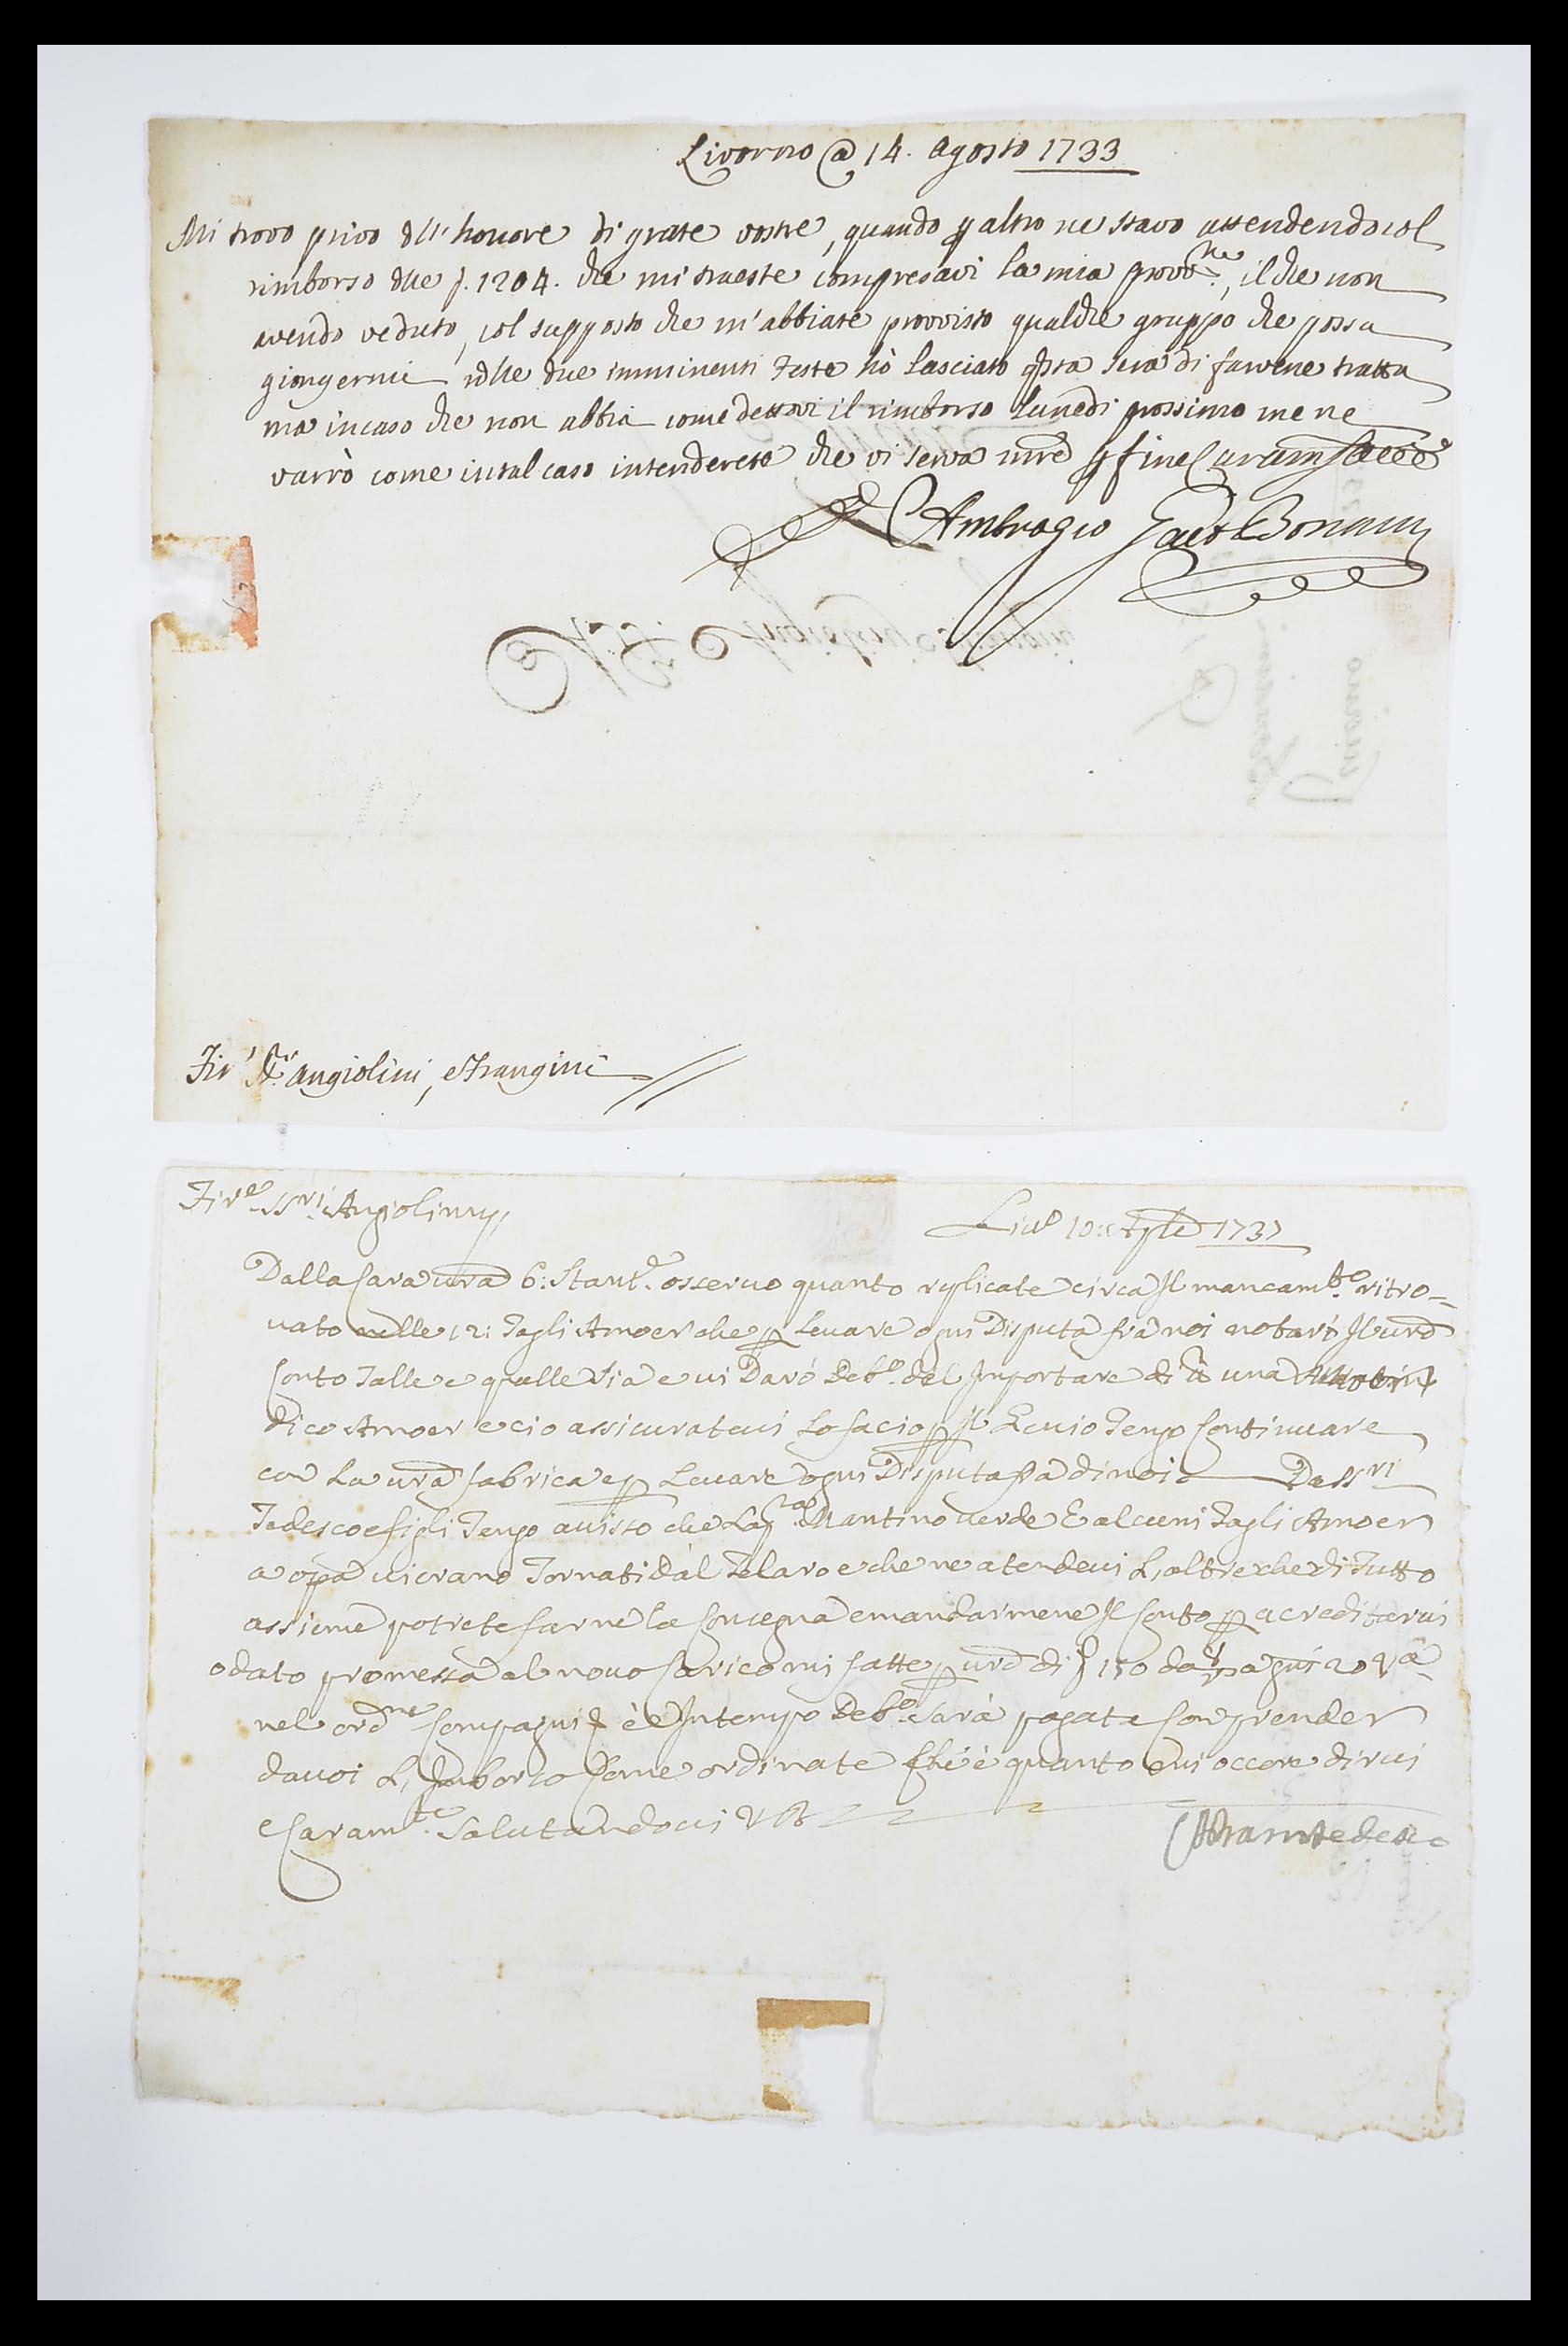 Livorno @ 14. Agosto 1733
Mi trovo privo dll' honore di grate vostre, quando p altro ne stavo attendendo col
rimborso dlle p. 1204. che mi traeste compresavi la mia provne, il che non
avendo veduto, col supposto che m'abbiate provvisto qualche gruppo che possa
giongermi nlle due imminenti feste hò lasciato qsta sera di farvene tratta
ma in caso che non abbia come dettovi il rimborso lunedi prossimo me ne
varrò come in tal caso intenderete che vi serva mre p fine Caram
Ambrogio Bonanni
Fir Sri Angiolini, e Frangini
Fire SSri Angiolinij
Livo 10: 1737
Dalla Cara vra 6: Stante osservo quanto replicate circa Il mancamto ritro=
vato nelle 12: Tagli Amoer che p Levare ogni Disputa frà noi notarò Il vro
Conto Talle e qualle Via e vi Daró Debo del Importare di una
dico Amoer e cio assicuratevi Lo facio p Il Genio Tengo Continuare
con La vra fabrica e p Levare ogni Disputa fra di noi Da SSri
Tedesco e figli Tengo avisso che La Mantino verde E alcuni Tagli Amoer
a opa vi erano Tornati dàl Telaro e che ne atendevi L, altre che di Tutto
assieme potrete farne la Consegna e mandarmene Il Conto p acreditarvi
o dato promessa al novo Carico mi fatte p vro di 150 da
nel ordne Compagni è e Intempo Debo Sarà pagata Con prender
da voi L, Imborso Come ordinate Che è quanto mi occore dirvi
e Caramte Salutandovi
Abram Tedesco